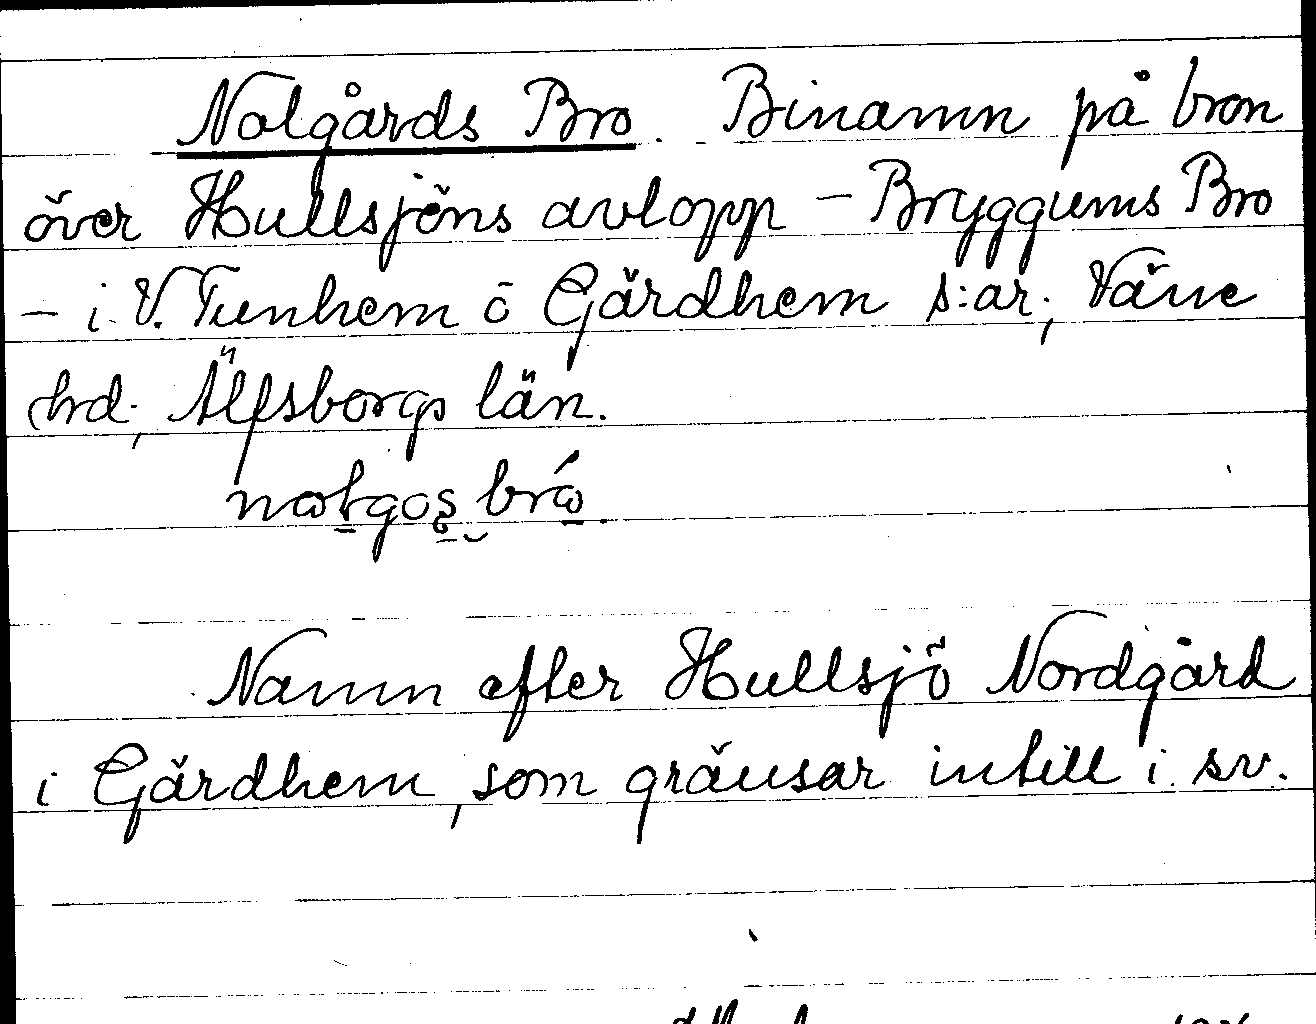 Nolgårds Bro. Binamn på bron
över Hullsjöns avlopp – Bryggums Bro
– i V. Tunhem o Gärdhem s:ar, Väne
hrd, Älfsborgs län.
Namn efter Hullsjö Nordgård
i Gärdhem, som gränsar intill i sv.